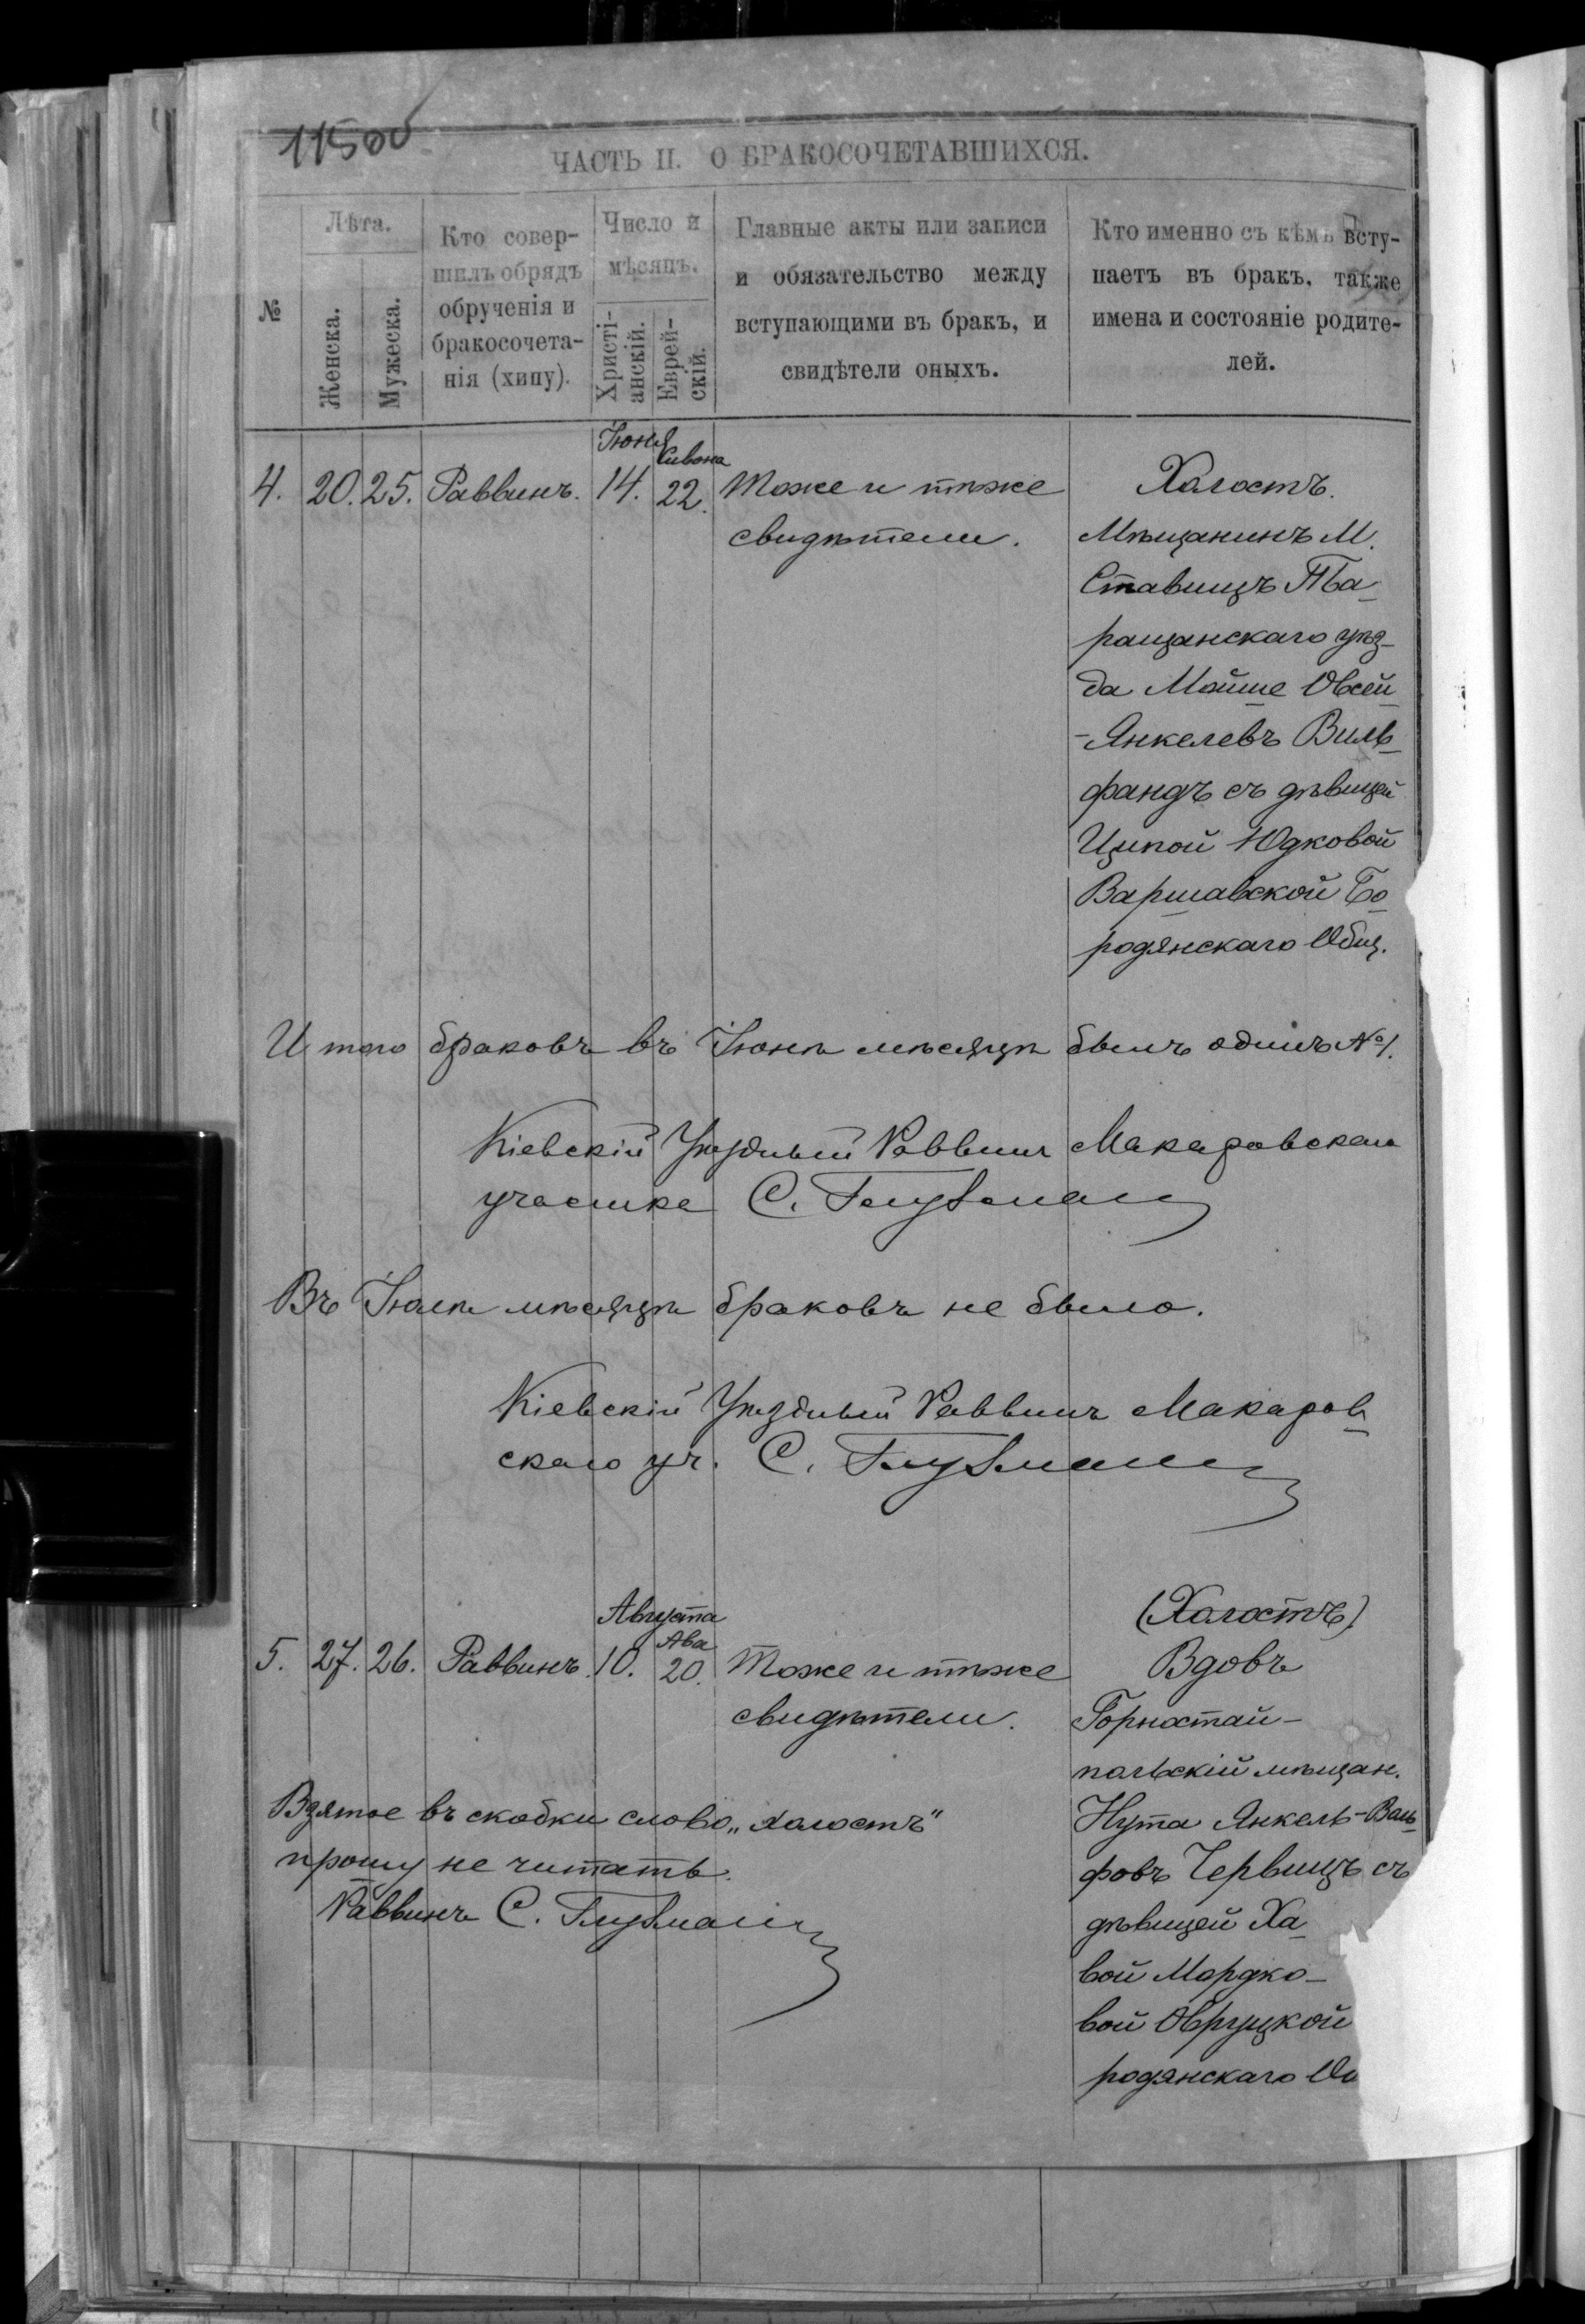 11500
ЧАСТЬ II. О БРАКОСОЧЕТАВШИХСЯ.
№
Лѣта.
Женска.
Мужеска.
Кто совер-
шилъ обрядъ
обрученія и
бракосочета-
нія (хипу).
Число и
мѣсяцъ.
Христі-
анскій.
Еврей-
скій.
Главные акты или записи
и обязательство между
вступающими въ бракъ, и
свидѣтели оныхъ.
Кто именно съ кѣмъ всту-
паетъ въ бракъ, также
имена и состояніе родите-
лей.
Іюня
Сивона
4. 20. 25. Раввинъ. 14. 22. Тоже и тѣже
свидѣтели.
Холостъ.
Мѣщанинъ М.
Ставищъ Та-
ращанскаго уѣз-
да Мойше Овсей
-Янкелевъ Виль-
фандъ съ дѣвицей
Ципой Юдковой
Варшавской Бо-
родянскаго Общ.
Итого браковъ въ Іюнѣ мѣсяцѣ былъ одинъ №1.
Кіевскій Уѣздный Раввинъ Макаровскаго
участка С. Глузманъ
Въ Іюлѣ мѣсяцѣ браковъ не было.
Кіевскій Уѣздный Раввинъ Макаров-
скаго уч. С. Глузманъ
Августа
Ава
5. 27. 26. Раввинъ. 10. 20. Тоже и тѣже
свидѣтели.
(Холостъ)
Вдовъ
Горностай-
польскій мѣщан.
Нута Янкель-Воль-
фовъ Червицъ съ
дѣвицей Ха-
вой Мордко-
вой Овруцкой
родянскаго
Взятое въ скобки слово „холостъ"
прошу не читать.
Раввинъ С. Глузманъ